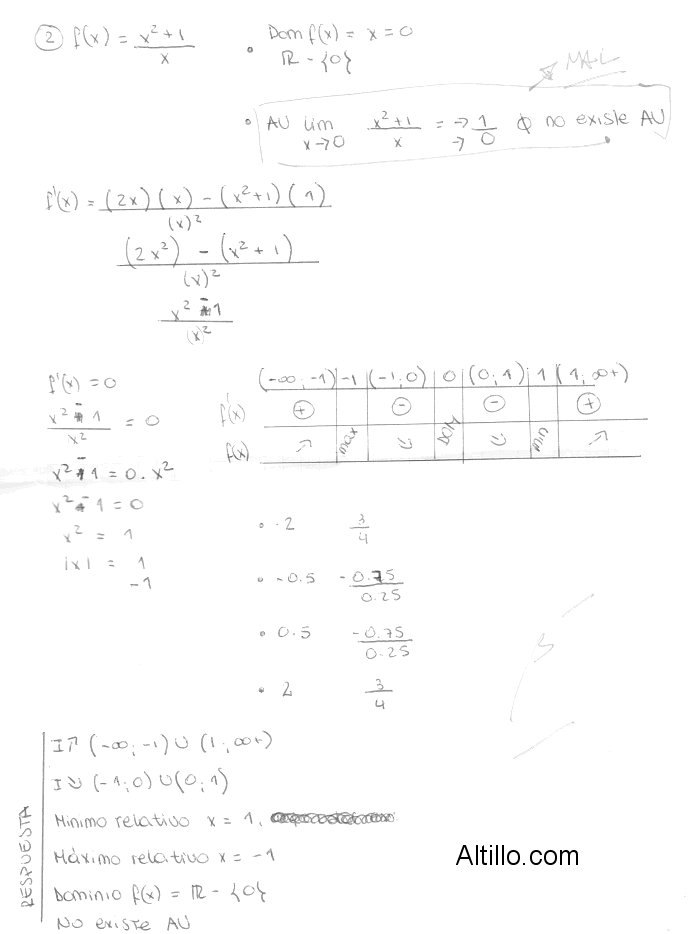 ② f(x) = x²+1 / x
• Dom f(x) = x = 0
ℝ - {0}
MAL
• AU lim x→0 x²+1 / x = →1 / →0 ∅ no existe AU
f'(x) = (2x)(x) - (x²+1)(1) / (x)²
(2x²) - (x²+1) / (x)²
x² - 1 / (x)²
f'(x) = 0
x² - 1 / x² = 0
x² - 1 = 0 . x²
x² - 1 = 0
x² = 1
|x| = 1
-1
(-∞; -1) -1 (-1; 0) 0 (0; 1) 1 (1; ∞+)
f'(x) ⊕ ⊖ ⊖ ⊕
f(x) ↗ max ↘ DOM ↘ min ↗
• -2 3/4
• -0.5 -0.75/0.25
• 0.5 -0.75/0.25
• 2 3/4
RESPUESTA
I↗ (-∞; -1) ∪ (1; ∞+)
I↘ (-1; 0) ∪ (0; 1)
Mínimo relativo x = 1,
Máximo relativo x = -1
Dominio f(x) = ℝ - {0}
No existe AU
Altillo.com